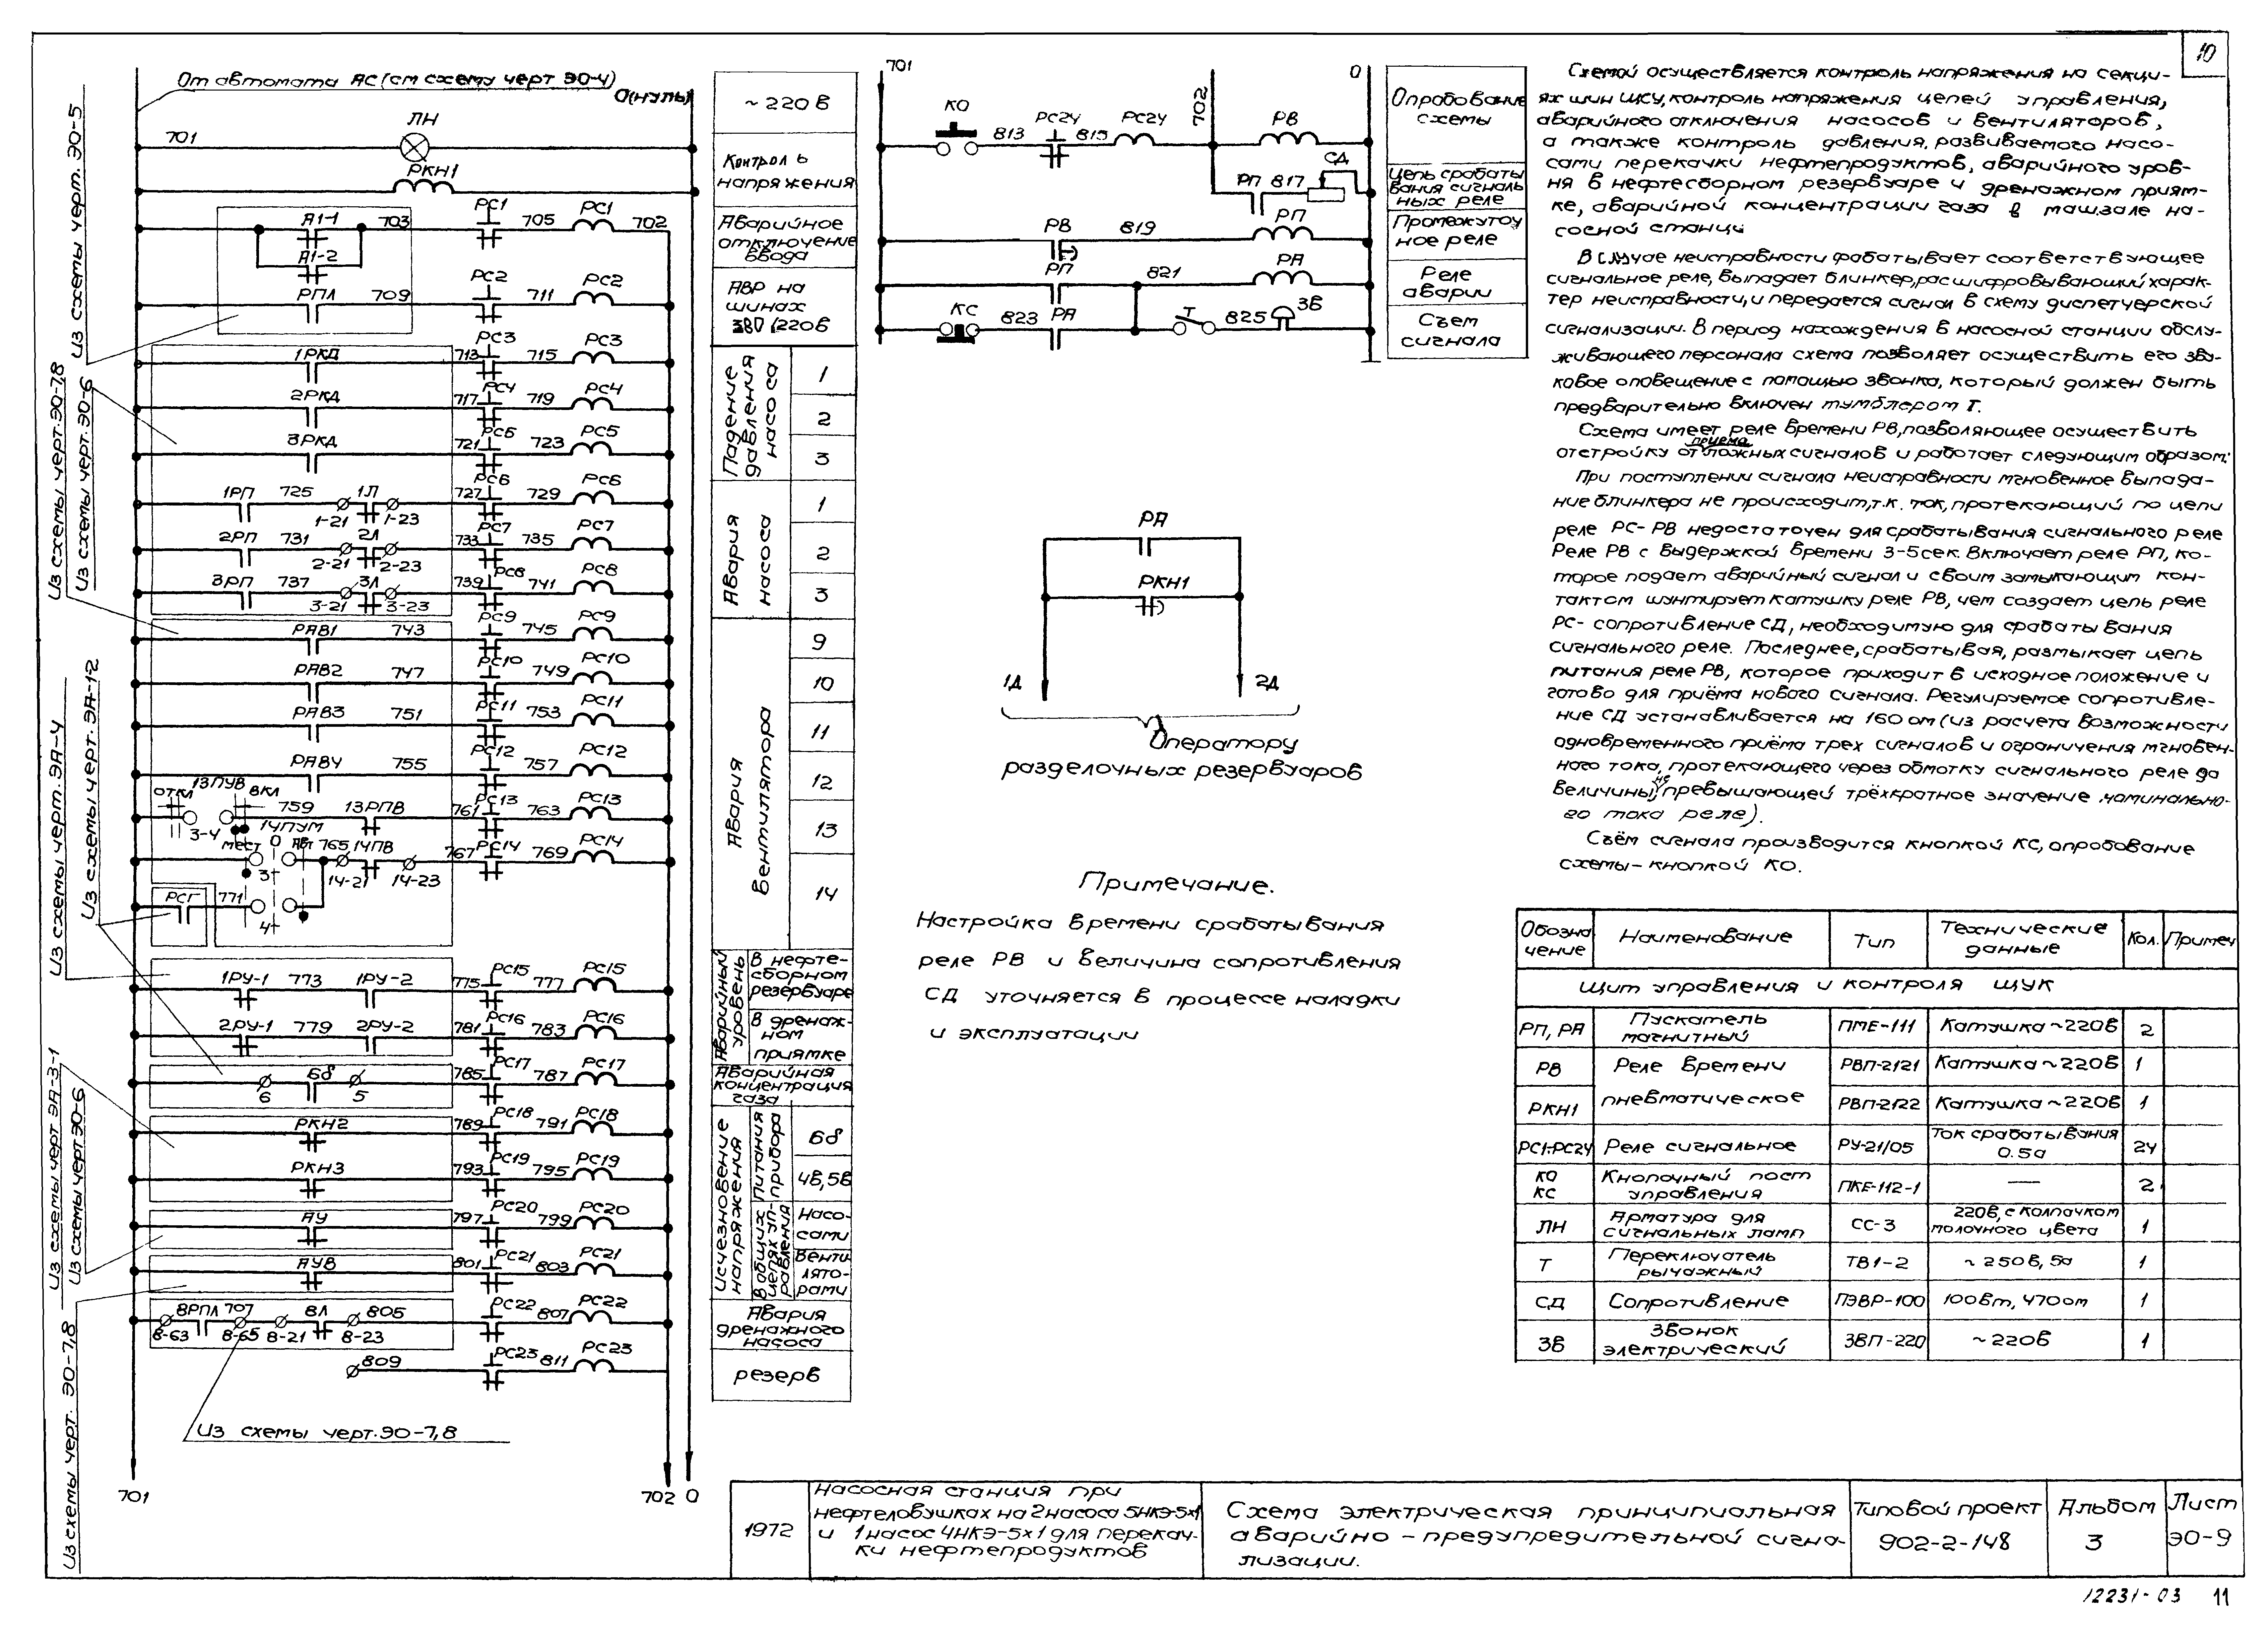 10
От автомата АС (см схему черт ЭО-4)
0(нуль)
701
ЛН
РКН1
А1-1
703
РС1
705
РС1
702
А1-2
РПЛ
709
РС2
711
РС2
1РКД
713
РС3
715
РС3
2РКД
717
РС4
719
РС4
3РКД
721
РС5
723
РС5
1РП
725
1-21
1Л
1-23
727
РС6
729
РС6
2РП
731
2-21
2Л
2-23
733
РС7
735
РС7
3РП
737
3-21
3Л
3-23
739
РС8
741
РС8
РАВ1
743
РС9
745
РС9
РАВ2
747
РС10
749
РС10
РАВ3
751
РС11
753
РС11
РАВ4
755
РС12
757
РС12
13ПУВ
откл
вкл
3-4
759
13РПВ
761
РС13
763
РС13
14ПУМ
мест
0
авт
765
14ПВ
14-21
14-23
767
РС14
769
РС14
3
РСГ
771
4
1РУ-1
773
1РУ-2
775
РС15
777
РС15
2РУ-1
779
2РУ-2
781
РС16
783
РС16
6
6б
5
785
РС17
787
РС17
РКН2
789
РС18
791
РС18
РКН3
793
РС19
795
РС19
АУ
797
РС20
799
РС20
АУВ
801
РС21
803
РС21
8РПЛ
707
8Л
805
РС22
807
РС22
8-63
8-65
8-21
8-23
809
РС23
811
РС23
Из схемы черт.ЭО-7,8
701
702
0
Из схемы черт. ЭО-5
Из схемы черт.ЭО-7,8
Из схемы черт.ЭО-6
Из схемы черт. ЭА-4
Из схемы черт. ЭА-12
Из схемы черт ЭА-3-1
Из схемы черт ЭО-6
Из схемы черт. ЭО-7,8
~ 220 в
Контроль
напряжения
Аварийное
отключение
ввода
АВР на
шинах
380/220в
Падение
давления
насоса
1
2
3
Авария
насоса
1
2
3
Авария
вентилятора
9
10
11
12
13
14
Аварийный
уровень
В нефте-
сборном
резервуаре
В дренаж-
ном
приямке
Аварийная
концентрация
газа
Исчезновение
напряжения
питания
прибора
6б
4в,5в
В общих
цепях уп-
равления
Насо-
сами
Венти-
лято-
рами
Авария
дренажного
насоса
резерв
701
КО
813
РС24
815
РС24
702
РВ
0
РП
817
СД
РВ
819
РП
РП
821
РА
КС
823
РА
Т
825
ЗВ
Опробование
схемы
Цепь срабаты
вания сигналь
ных реле
Промежуточ
ное реле
Реле
аварии
Съем
сигнала
РА
РКН1
1Д
2Д
Оператору
разделочных резервуаров
Примечание.
Настройка времени срабатывания
реле РВ и величина сопротивления
СД уточняется в процессе наладки
и эксплуатации
Схемой осуществляется контроль напряжения на секци-
ях шин ЩСУ, контроль напряжения цепей управления,
аварийного отключения насосов и вентиляторов,
а также контроль давления, развиваемого насо-
сами перекачки нефтепродуктов, аварийного уров-
ня в нефтесборном резервуаре и дренажном приям-
ке, аварийной концентрации газа в маш.зале на-
сосной станци
В случае неисправности срабатывает соответствующее
сигнальное реле, выпадает блинкер, расшифровывающий харак-
тер неисправности, и передается сигнал в схему диспетчерской
сигнализации. В период нахождения в насосной станции обслу-
живающего персонала схема позволяет осуществить его зву-
ковое оповещение с помощью звонка, который должен быть
предварительно включен тумблером Т.
Схема имеет реле времени РВ, позволяющее осуществить
отстройку от приема ложных сигналов и работает следующим образом:
При поступлении сигнала неисправности мгновенное выпада-
ние блинкера не происходит, т.к. ток, протекающий по цепи
реле РС-РВ недостаточен для срабатывания сигнального реле
Реле РВ с выдержкой времени 3-5сек. Включает реле РП, ко-
торое подает аварийный сигнал и своим замыкающим кон-
тактом шунтирует катушку реле РВ, чем создает цепь реле
РС- сопротивление СД, необходимую для срабатывания
сигнального реле. Последнее, срабатывая, размыкает цепь
питания реле РВ, которое приходит в исходное положение и
готово для приёма нового сигнала. Регулируемое сопротивле-
ние СД устанавливается на 160 ом (из расчета возможности
одновременного приёма трех сигналов и ограничения мгновен-
ного тока, протекающего через обмотку сигнального реле до
величины, не превышающей трёхкратное значение номинально-
го тока реле).
Съём сигнала производится кнопкой КС, опробование
схемы-кнопкой КО.
Обозна
чение
Наименование
Тип
Технические
данные
Кол.
Примеч
Щит управления и контроля ЩУК
РП, РА
Пускатель
магнитный
ПМЕ-111
Катушка ~220в
2
РВ
Реле времени
пневматическое
РВП-2121
Катушка ~220в
1
РКН1
РВП-2122
Катушка ~220в
1
РС1÷РС24
Реле сигнальное
РУ-21/05
Ток срабатывания
0.5а
24
КО
КС
Кнопочный пост
управления
ПКЕ-112-1
—
2
ЛН
Арматура для
сигнальных ламп
СС-3
220в, с колпачком
молочного цвета
1
Т
Переключатель
рычажный
ТВ1-2
~ 250в, 5а
1
СД
Сопротивление
ПЭВР-100
100вт, 470ом
1
ЗВ
Звонок
электрический
ЗВП-220
~ 220в
1
1972
Насосная станция при
нефтеловушках на 2 насоса 5НКЭ-5х1
и 1 насос 4НКЭ-5х1 для перекач-
ки нефтепродуктов
Схема электрическая принципиальная
аварийно - предупредительной сигна-
лизации.
Типовой проект
902-2-148
Альбом
3
Лист
ЭО-9
12231-03 11